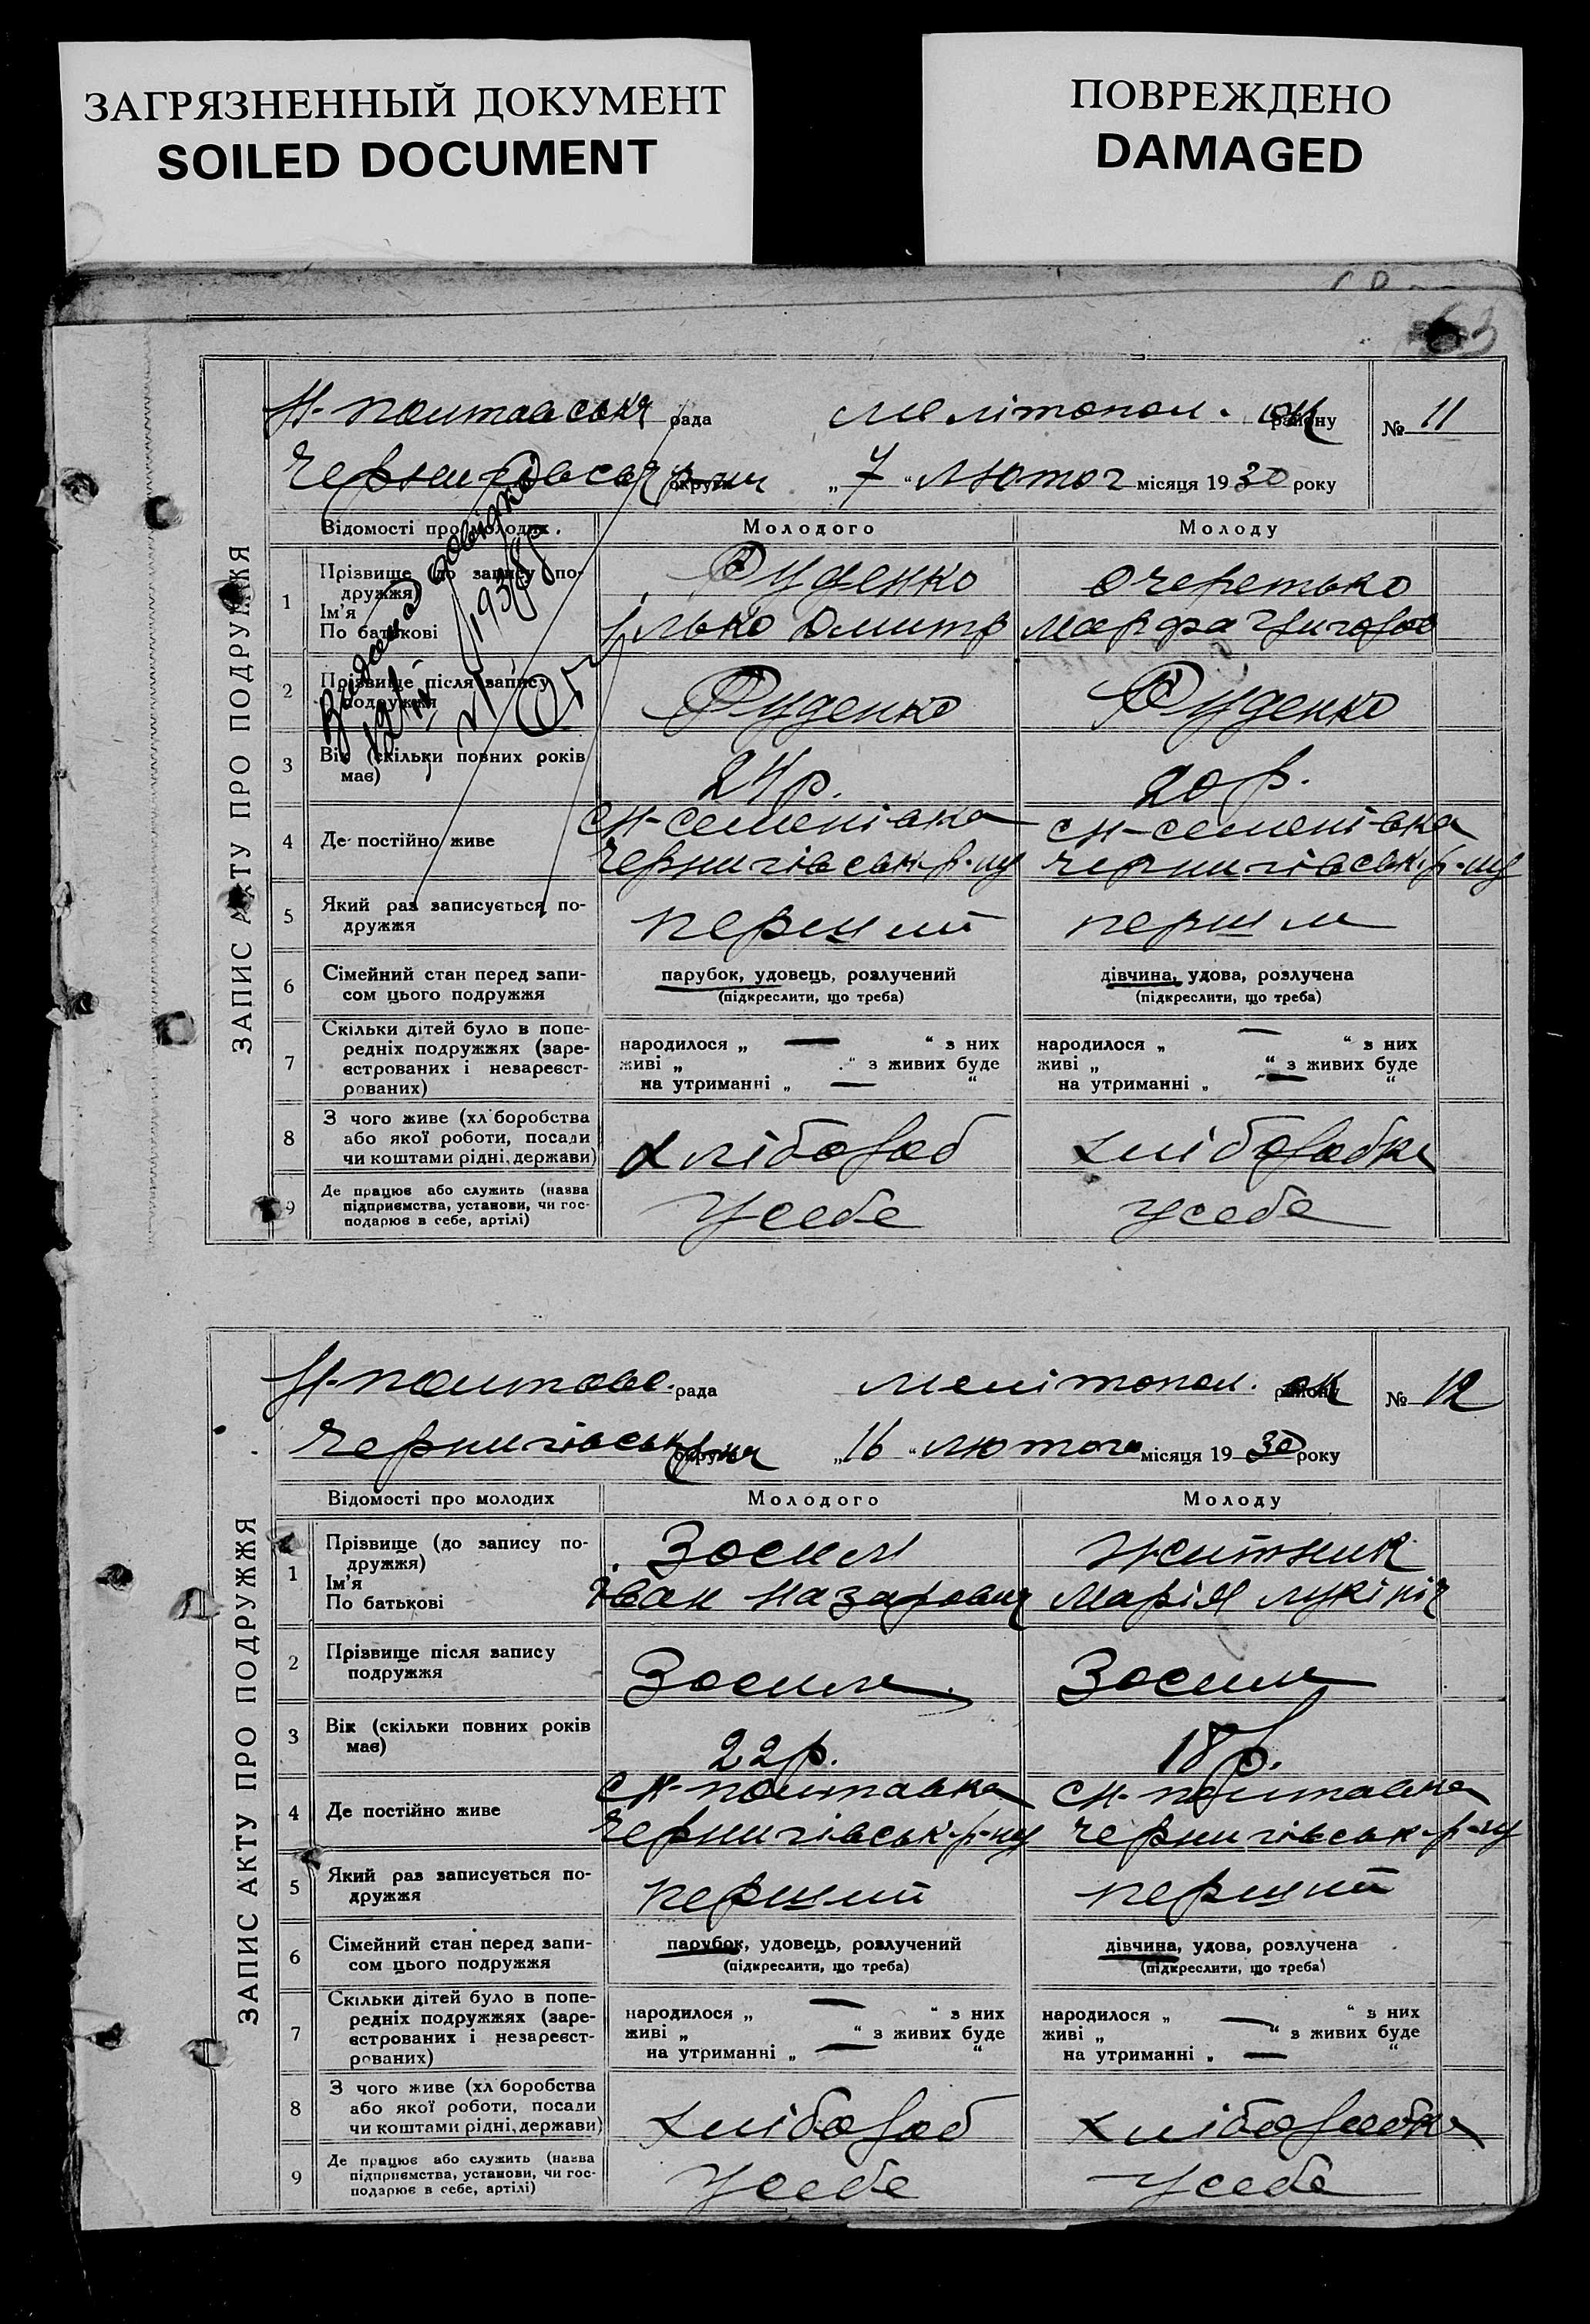 ЗАГРЯЗНЕННЫЙ ДОКУМЕНТ
SOILED DOCUMENT
ПОВРЕЖДЕНО
DAMAGED
63
ЗАПИС АКТУ ПРО ПОДРУЖЖЯ
Н-Полтавська рада Мелітопол. ок району № 11
округи „7“ Лютог місяця 1930 року
Відомості про молодих. Молодого Молоду
1 Прізвище (до запису подружжя) Руденко Очеретько
Ім'я
По батькові Ілько Дмитр Марфа
2 Прізвище після запису подружжя Руденко Руденко
3 Вік (скільки повних років має) 24 р. 20 р.
4 Де постійно живе с Н-Семенівка с Н-Семенівка
Чернигівськ. р-ну Чернигівськ. р-ну
5 Який раз записується подружжя перший перши
6 Сімейний стан перед записом цього подружжя парубок, удовець, розлучений дівчина, удова, розлучена
(підкреслити, що треба) (підкреслити, що треба)
7 Скільки дітей було в попередніх подружжях (зареєстрованих і незареєстрованих) народилося „ — “ з них народилося „ — “ з них
живі „ “ з живих буде живі „ “ з живих буде
на утриманні „ — “ на утриманні „ — “
8 З чого живе (хліборобства або якої роботи, посади чи коштами рідні, держави) Хлібороб Хліборобка
9 Де працює або служить (назва підприємства, установи, чи господарює в себе, артілі) У себе У себе
ЗАПИС АКТУ ПРО ПОДРУЖЖЯ
Н-Полтавс. рада Мелітопол. ок району № 12
Чернигівськ округи „16“ Лютого місяця 1930 року
Відомості про молодих Молодого Молоду
1 Прізвище (до запису подружжя) Зосим Житник
Ім'я
По батькові Іван Назарович Марія Лукініч
2 Прізвище після запису подружжя Зосим Зосим
3 Вік (скільки повних років має) 22 р. 18 р.
4 Де постійно живе с Н-Полтавка с Н-Полтавка
Чернигівськ. р-ну Чернигівськ. р-ну
5 Який раз записується подружжя перший перший
6 Сімейний стан перед записом цього подружжя парубок, удовець, розлучений дівчина, удова, розлучена
(підкреслити, що треба) (підкреслити, що треба)
7 Скільки дітей було в попередніх подружжях (зареєстрованих і незареєстрованих) народилося „ — “ з них народилося „ — “ з них
живі „ “ з живих буде живі „ “ з живих буде
на утриманні „ — “ на утриманні „ — “
8 З чого живе (хліборобства або якої роботи, посади чи коштами рідні, держави) Хлібороб Хліборобка
9 Де працює або служить (назва підприємства, установи, чи господарює в себе, артілі) У себе У себе